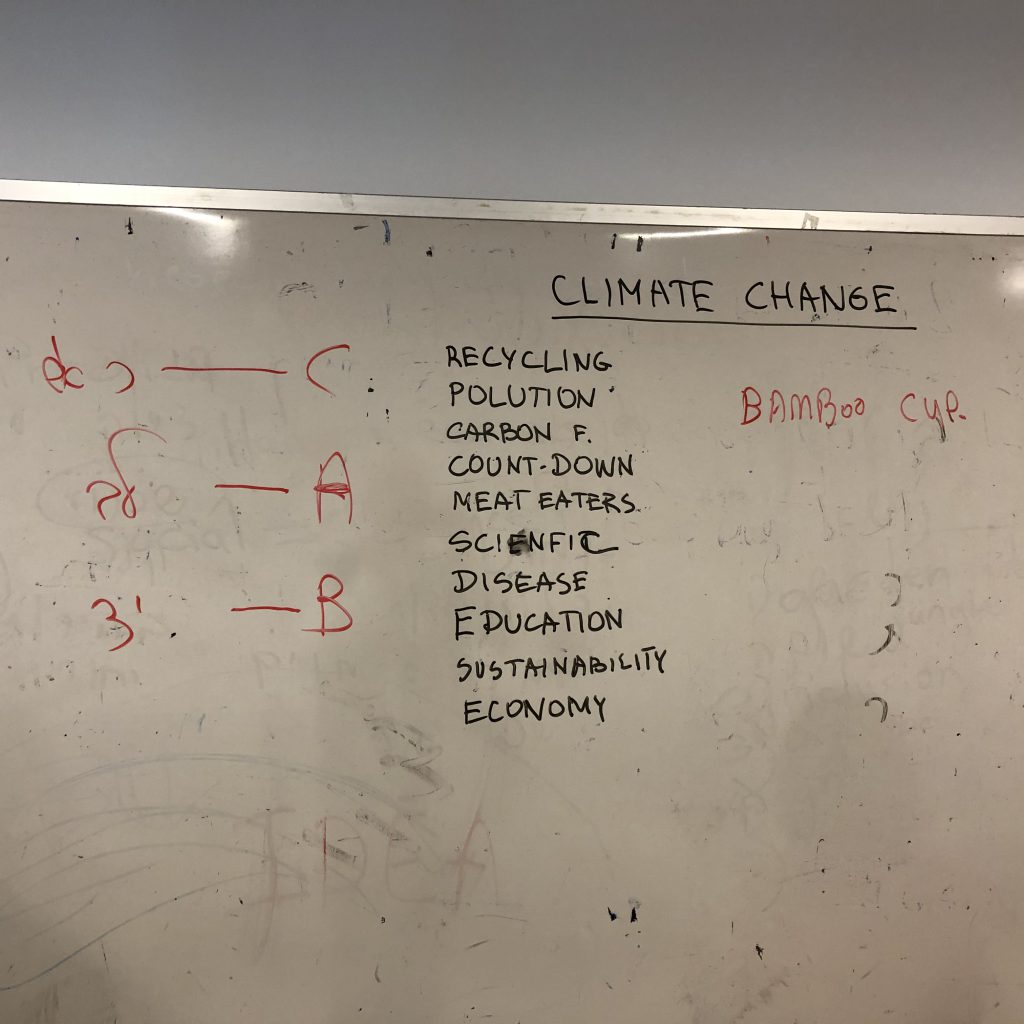 CLIMATE CHANGE
RECYCLING
POLUTION
BAMBOO CUP.
CARBON F.
COUNT-DOWN
MEAT EATERS.
SCIENFIC
DISEASE
EDUCATION
SUSTAINABILITY
ECONOMY
— C
— A
— B